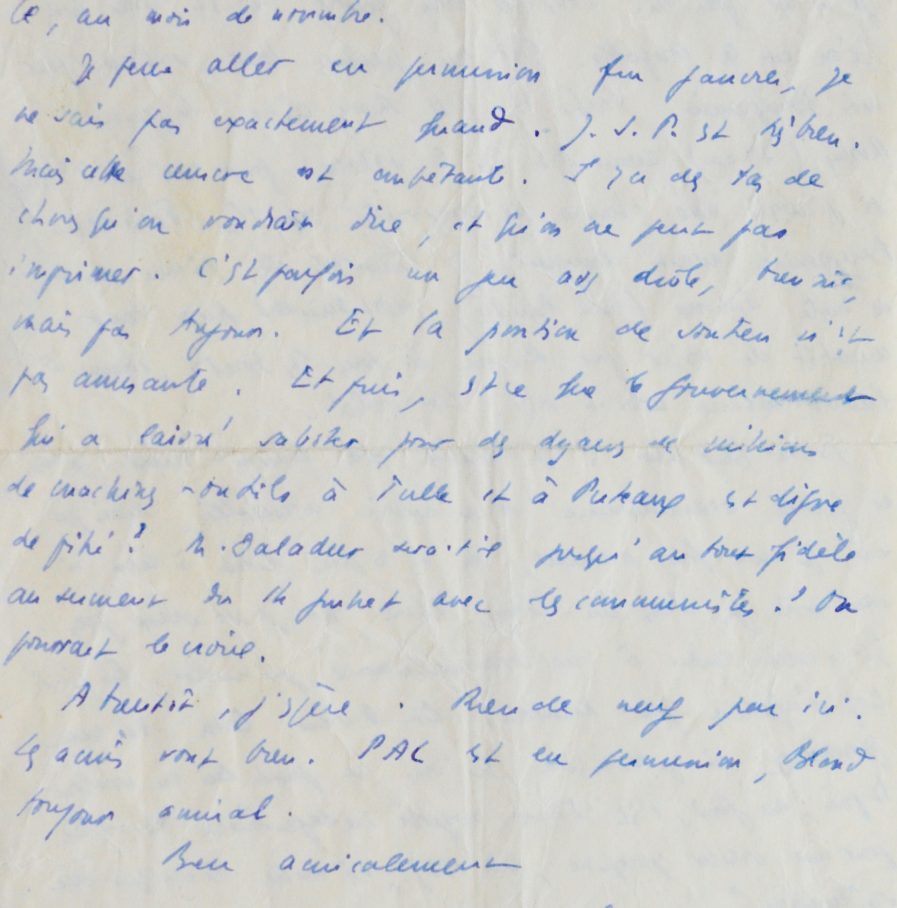 ce, au mois de novembre.
Je peux aller en permission fin janvier, je
ne sais pas exactement quand. J. S. P. est très bien.
Mais cette censure est embêtante. Il y a des tas de
choses qu'on voudrait dire, et qu'on ne peut pas
imprimer. C'est parfois un peu drôle,
mais pas toujours. Et la position de soutien n'est
pas amusante. Et puis, est-ce que le gouvernement
qui a laissé subsister pour des dizaines de millions
de machines-outils à Tulle et à Puteaux est digne
de pitié? M. Daladier serait-il jusqu'au bout fidèle
au serment du 14 juillet avec les communistes? On
pourrait le croire.
A bientôt, j'espère. Rien de neuf par ici.
Les amis vont bien. PAL est en permission, Blond
toujours amiral.
Bien amicalement